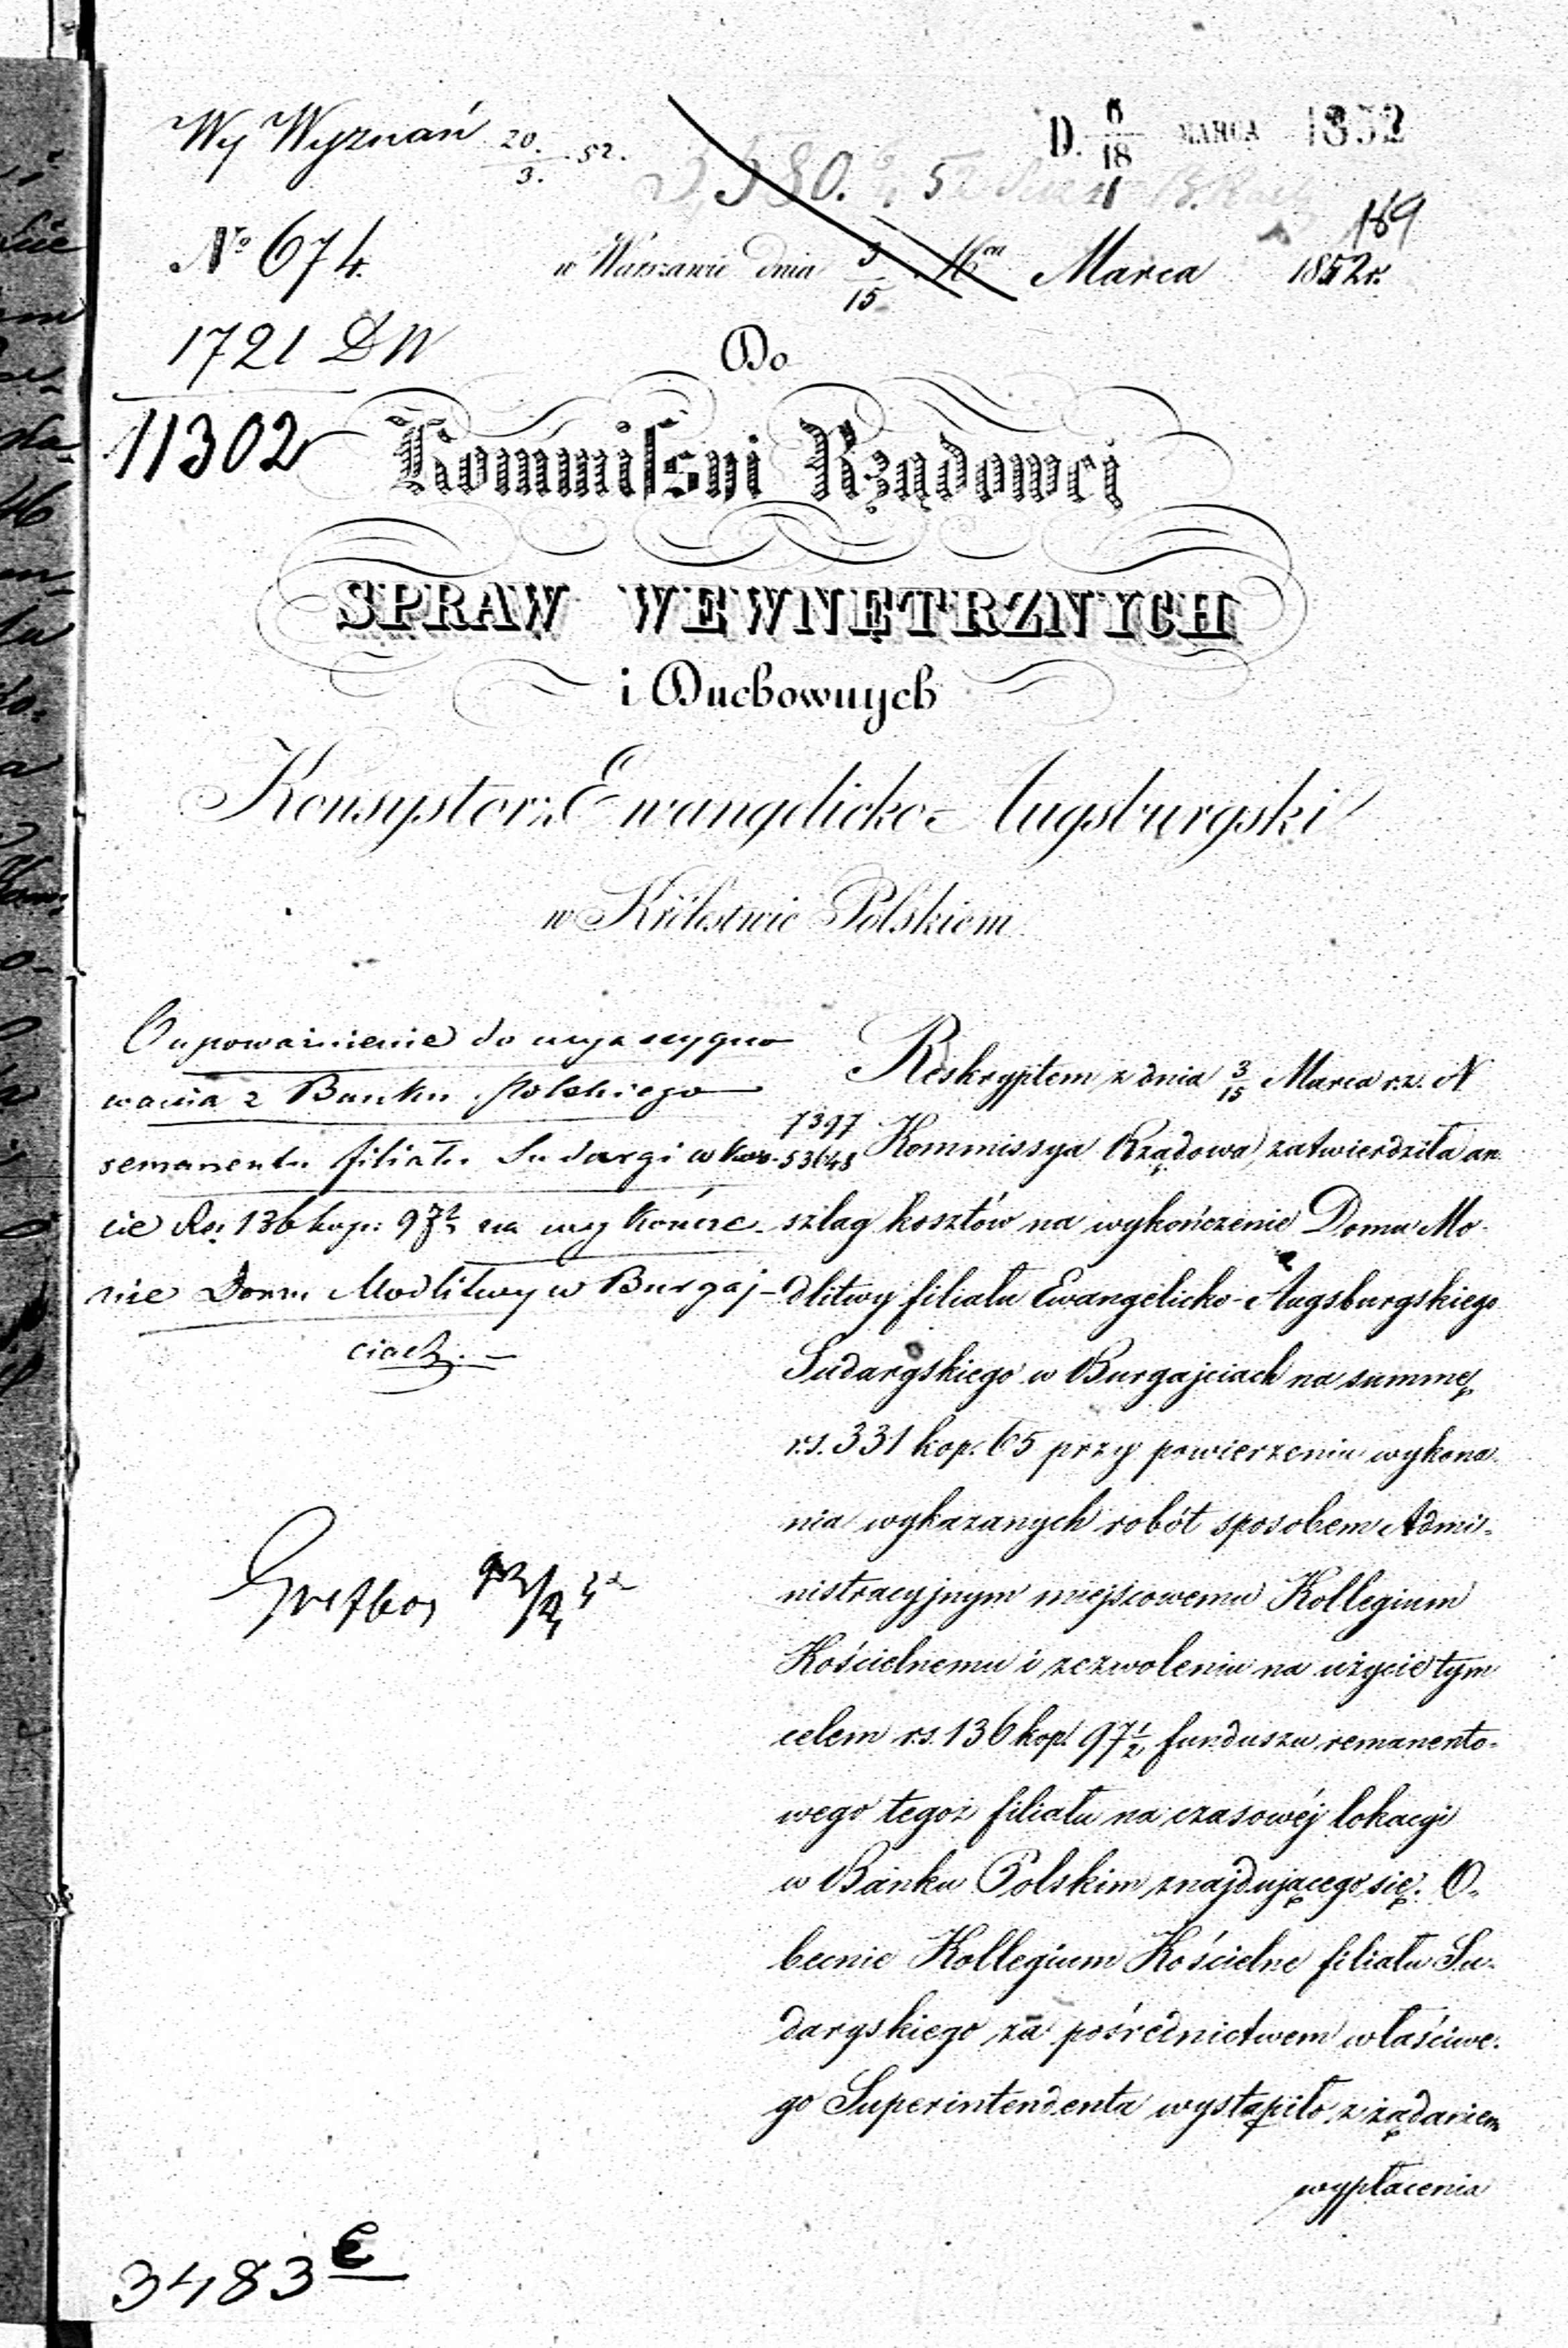 Wy Wyznań 20./3. 52.
D. 6/18 MARCA 1852
380.
169
№ 674.
w Warszawie dnia 3/15 16m Marca 1852r.
1721 DW
11302
Do
Kommissyi Rządowej
SPRAW WEWNĘTRZNYCH
i Duchownych
Konsystorz Ewangelicko-Augsburgski
w Królestwie Polskiem
O upoważnienie do wyassygno
wania z Banku Polskiego
remanentu filiału Sudargi w kwo-
cie Rs. 136 kop: 97½ na wykończe-
nie Domu Modlitwy w Burgaj-
ciach. –
Reskryptem z dnia 3/15 Marca r.z. N
7397/53648 Kommissya Rządowa zatwierdziła an-
szlag kosztów na wykończenie Domu Mo-
dlitwy filiału Ewangelicko-Augsburgskiego
Sudargskiego w Burgajciach na summę
r.s. 331 kop. 65 przy powierzeniu wykona-
nia wykazanych robót sposobem Admi-
nistracyjnym miejscowemu Kollegium
Kościelnemu i zezwoleniu na użycie tym
celem r.s. 136 kop. 97½, funduszu remanento-
wego tegoż filiału na czasowéj lokacyi
w Banku Polskim znajdującego się. O-
becnie Kollegium Kościelne filiału Su-
dargskiego za pośrednictwem właściwe-
go Superintendenta wystąpiło z żądaniem
wypłacenia
3483 e